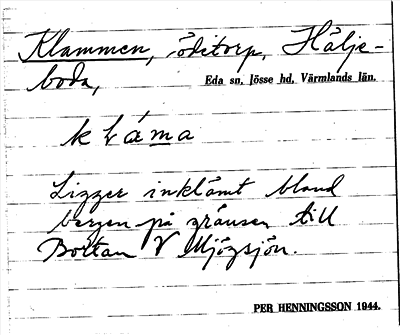 Klammen, öditorp, Hälje-
boda,
Eda sn, Jösse hd, Värmlands län.
Ligger inklämt bland
bergen på gränsen till
Bortan V Mjögsjön.
PER HENNINGSSON 1944.